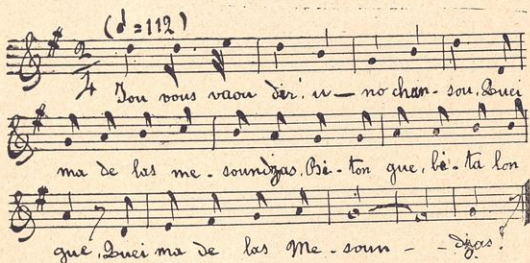 (♩=112)
2/4
Iou vous vaou dir' u - no chan - sou, Quei
ma de las me - soundzas. Be - ton gue, be - ta lon
gue, Quei ma de las Me - soun - - dzas.